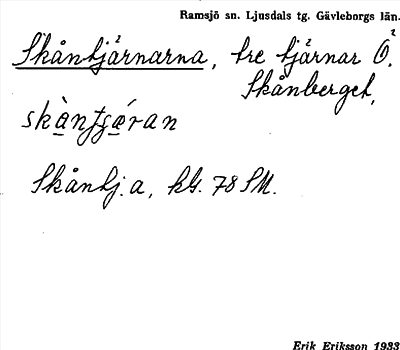 Ramsjö sn. Ljusdals tg. Gävleborgs län.
Skåntjärnarna, tre tjärnar Ö.
Skånberget,
Skåntj.a, kbl. 78 SM.
Erik Eriksson 1933